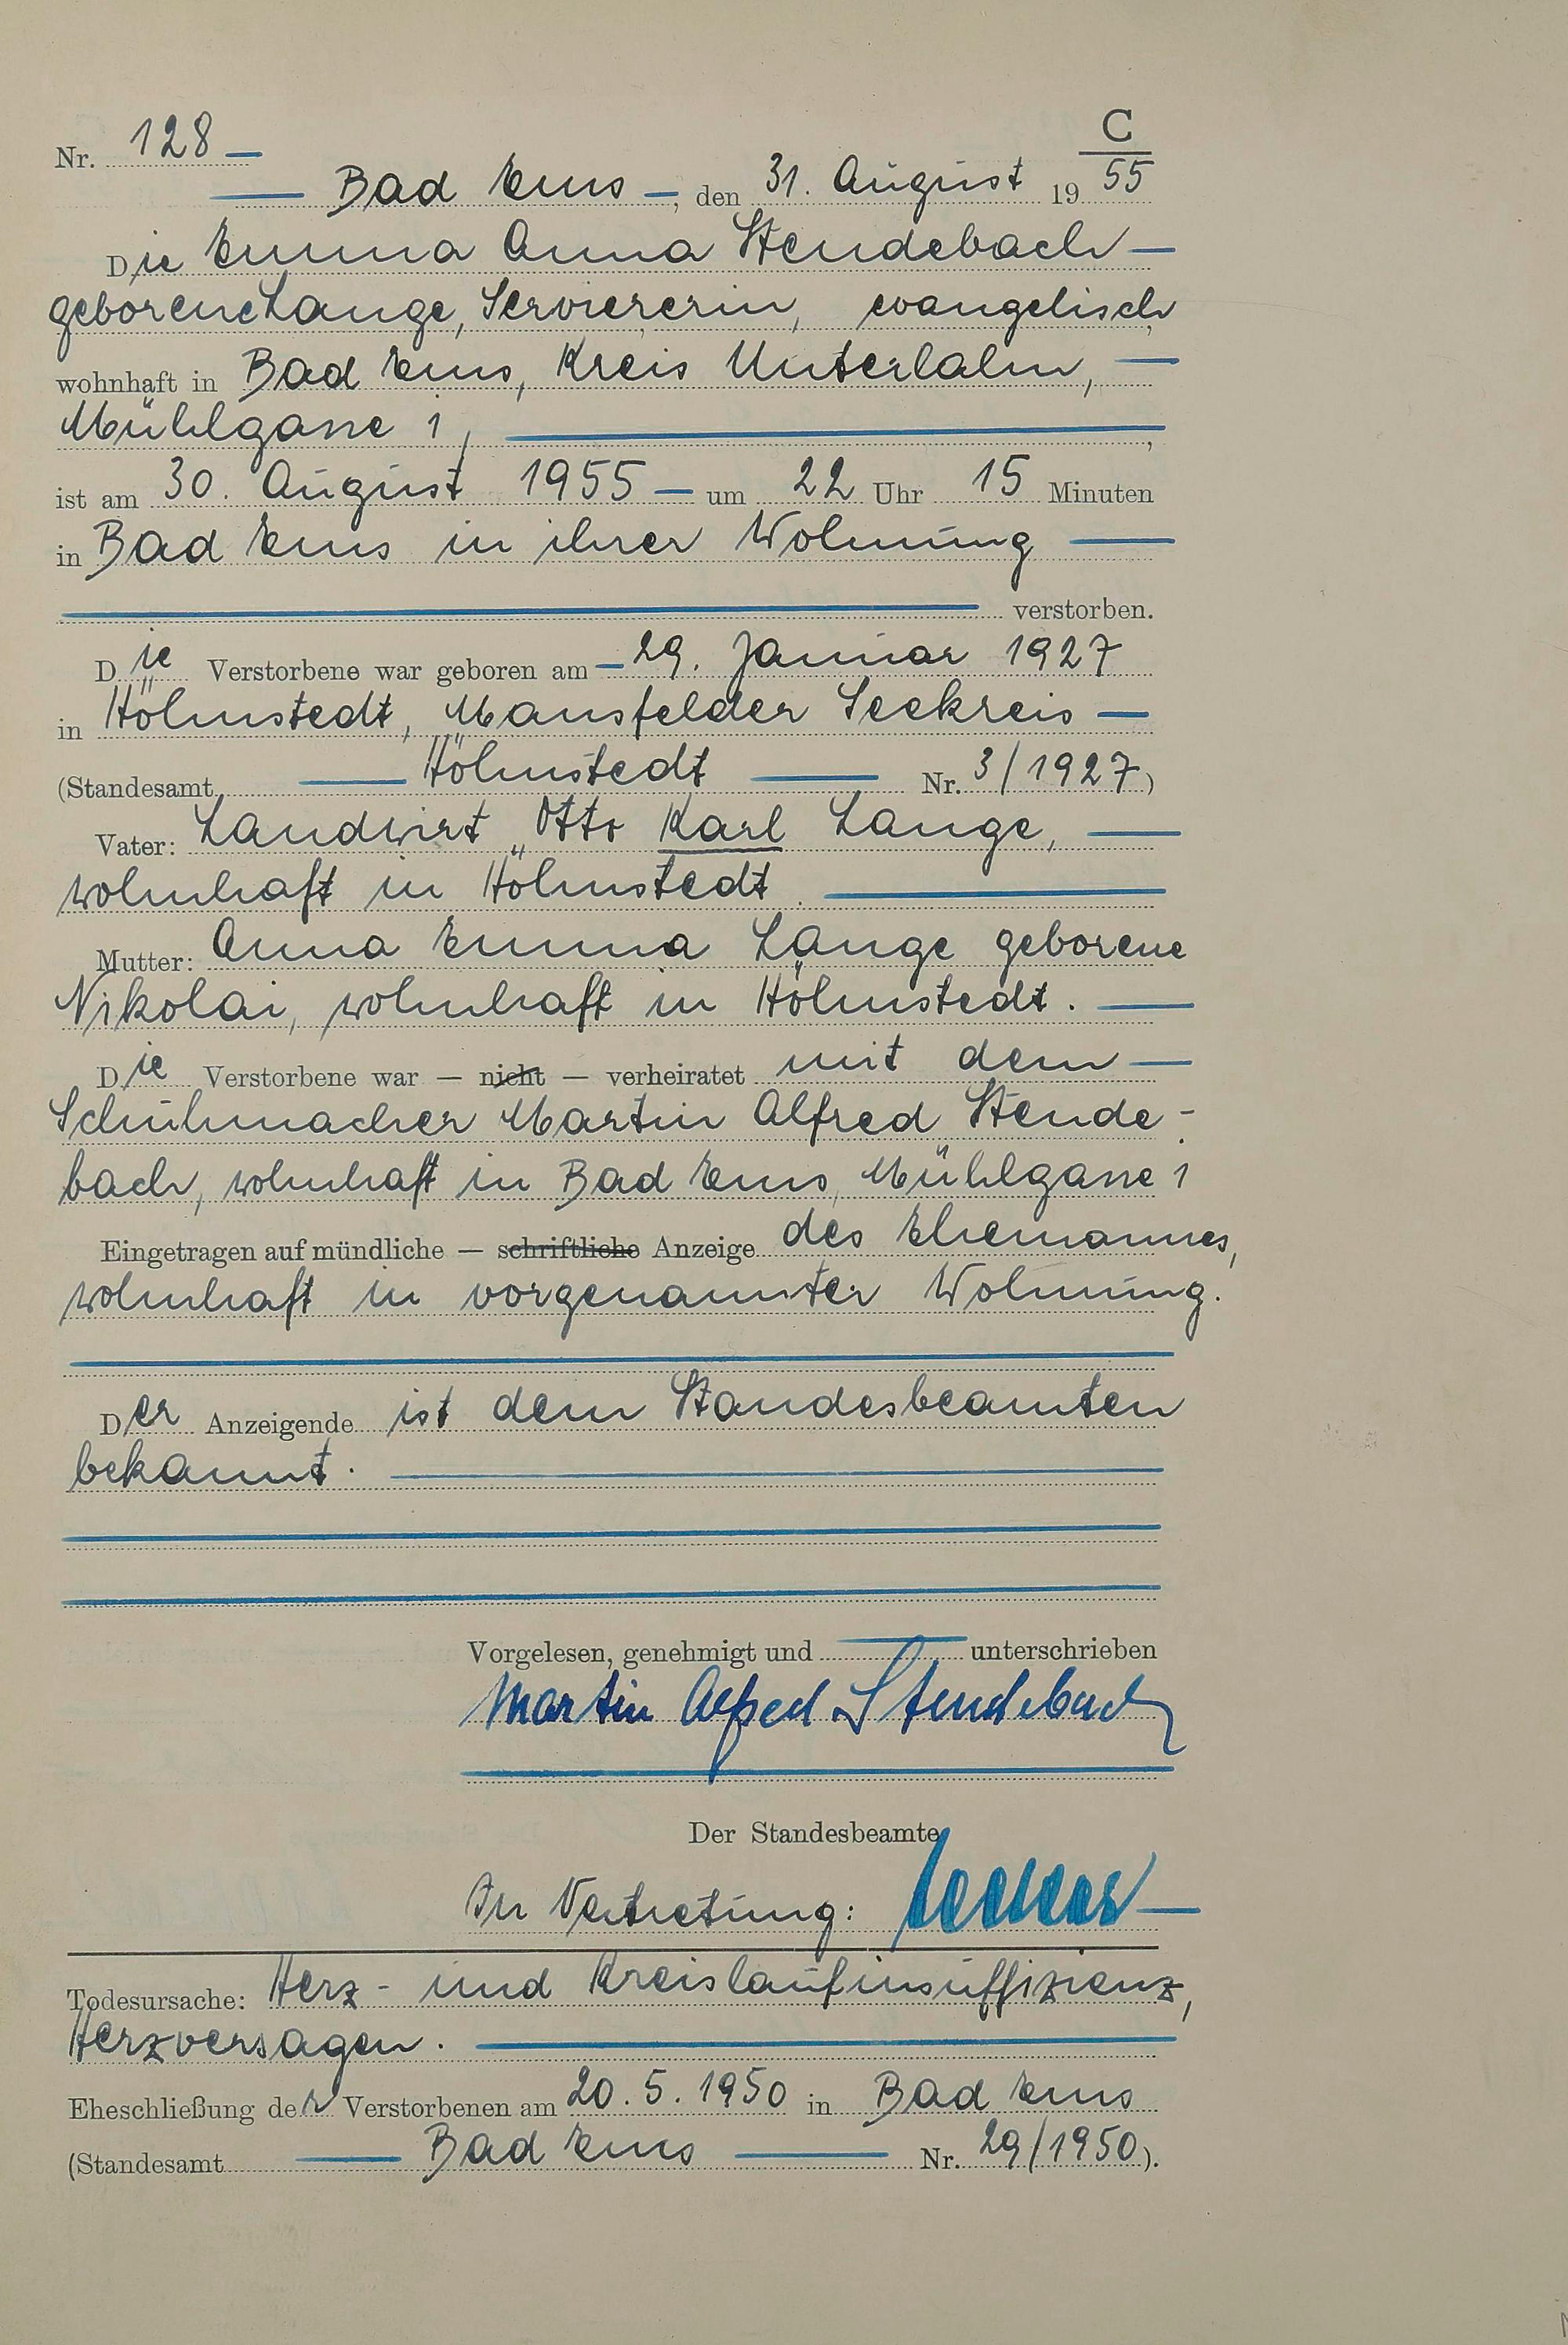 C
Nr. 128 —
— Bad Ems —, den 31. August 1955
Die Emma Anna Stendebach —
geborene Lange, Serviererin, evangelisch,
wohnhaft in Bad Ems, Kreis Unterlahn, —
Mühlgasse 1, —,
ist am 30. August 1955 — um 22 Uhr 15 Minuten
in Bad Ems in ihrer Wohnung —
verstorben.
Die Verstorbene war geboren am — 29. Januar 1927
in Höhnstedt, Mansfelder Seekreis —
(Standesamt — Höhnstedt — Nr. 3/1927)
Vater: Landwirt Otto Karl Lange, —
wohnhaft in Höhnstedt. —
Mutter: Anna Emma Lange geborene
Nikolai, wohnhaft in Höhnstedt. —
Die Verstorbene war — nicht — verheiratet mit dem —
Schuhmacher Martin Alfred Stende-
bach, wohnhaft in Bad Ems, Mühlgasse 1
Eingetragen auf mündliche — schriftliche Anzeige des Ehemannes,
wohnhaft in vorgenannter Wohnung.
Der Anzeigende ist dem Standesbeamten
bekannt. —
Vorgelesen, genehmigt und — unterschrieben
Martin Alfred Stendebach
Der Standesbeamte
In Vertretung:
Todesursache: Herz- und Kreislaufinsuffizienz,
Herzversagen. —
Eheschließung der Verstorbenen am 20.5.1950 in Bad Ems
(Standesamt — Bad Ems — Nr. 29/1950).